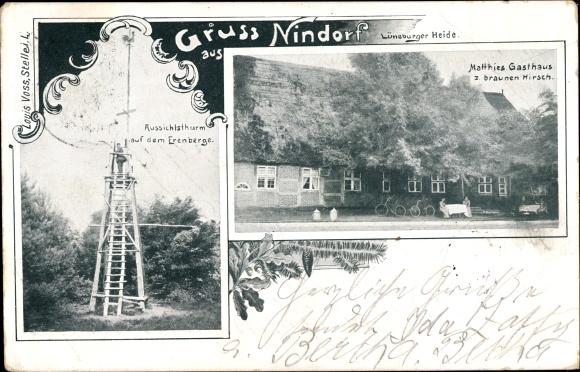 Gruss
aus Nindorf Lüneburger Heide.
Louis Voss, Stelle i. L.
Matthies Gasthaus
z. braunen Hirsch.
Aussichtsthurm
auf dem Erenberge.
Herzliche Grüße
sendet Ida
u. Bertha.